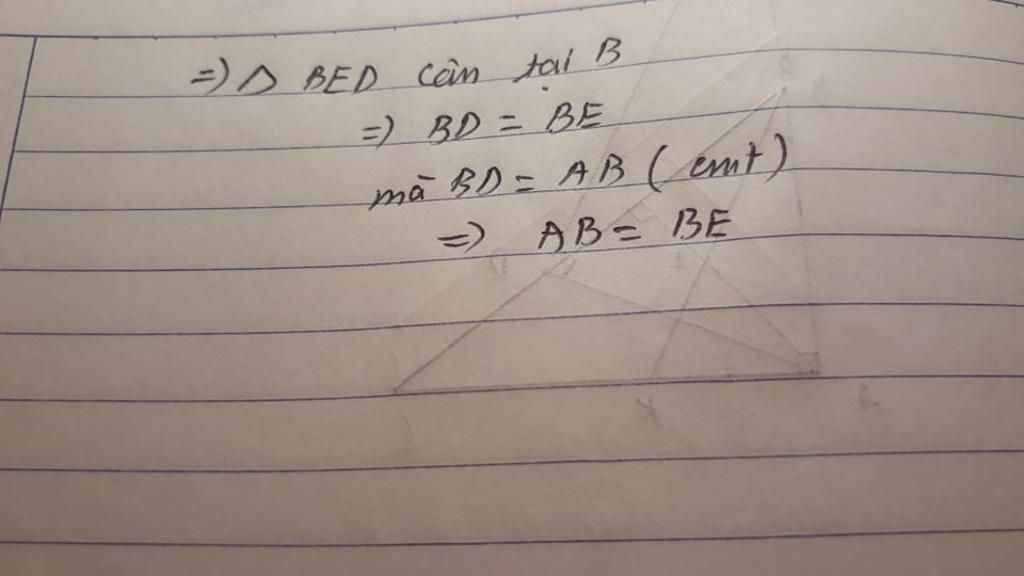 =) Δ BED cân tại B
=) BD = BE
mà BD = AB ( cmt )
=) AB = BE